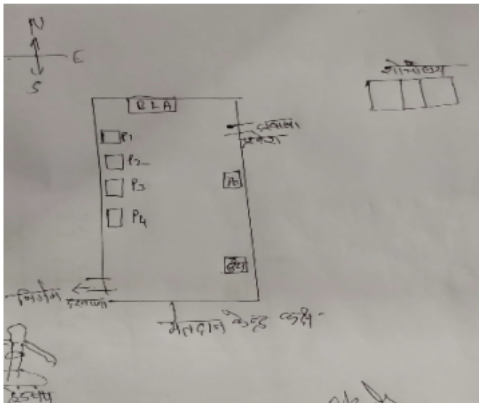 N
E
S
शौचालय
BLA
P1
P2
P3
P4
दरवाजा
प्रवेश
Po
निर्गम
दरवाजा
मतदान केन्द्र कक्ष
हैंडपंप